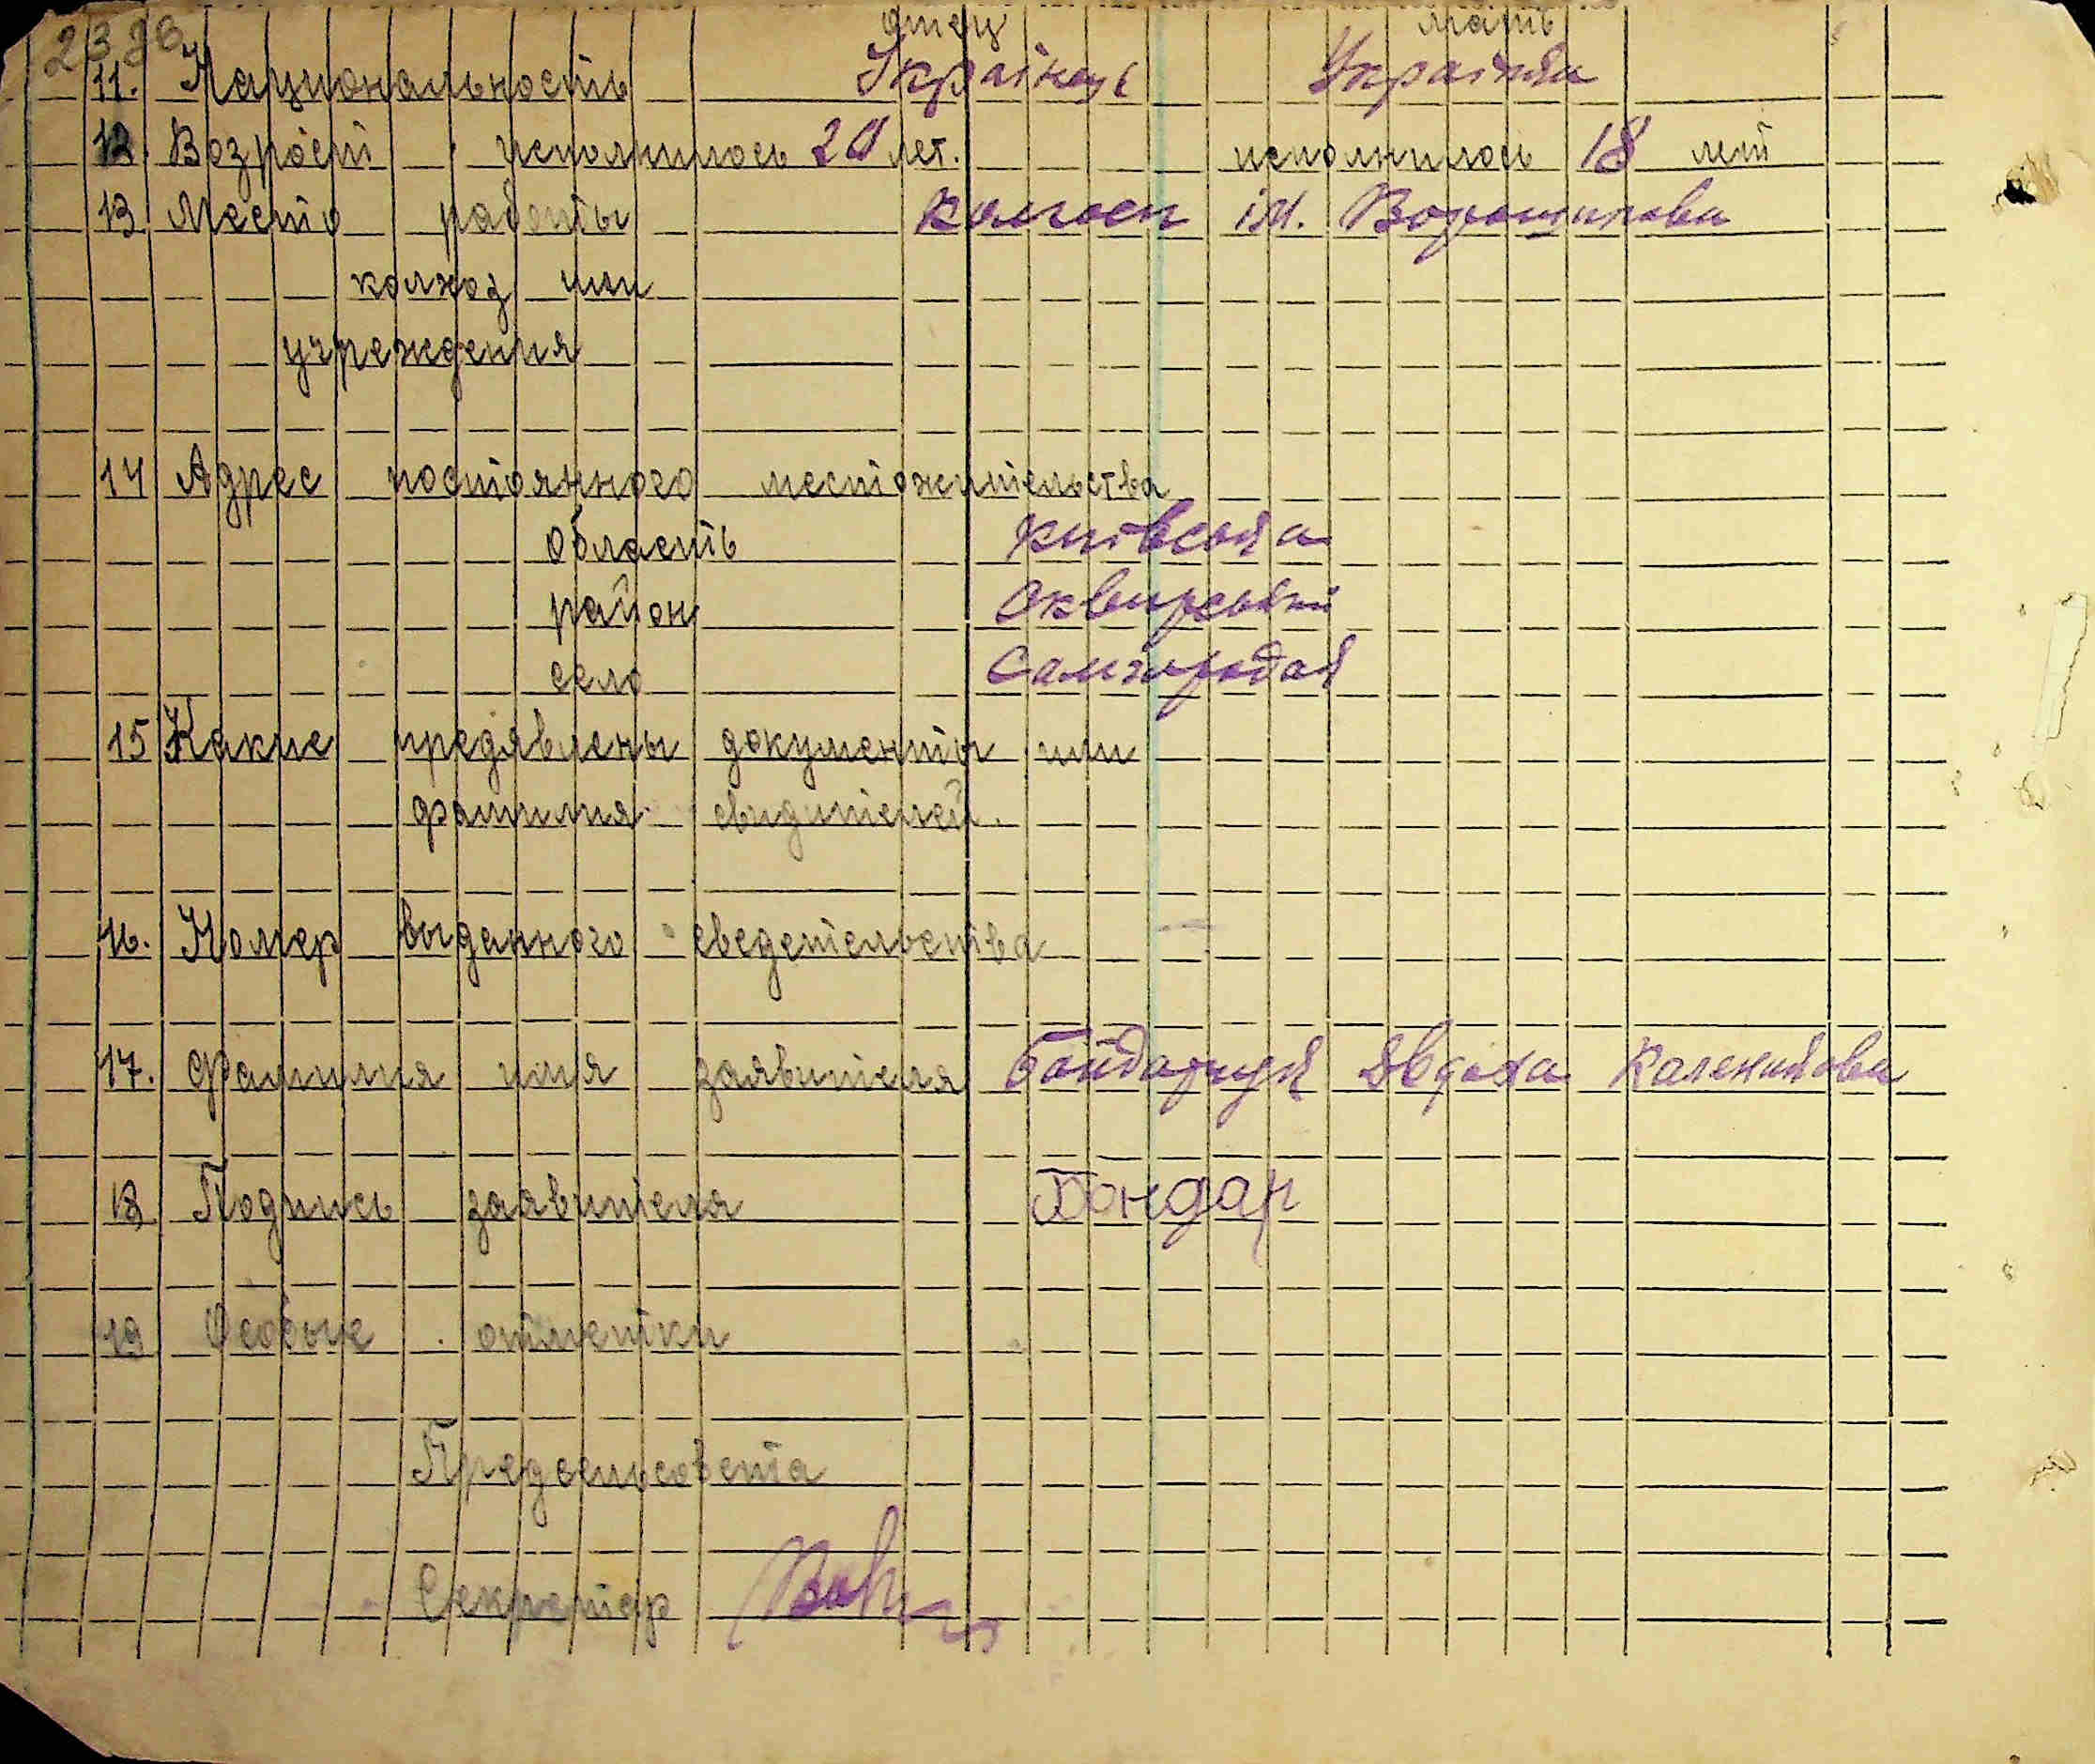 отец мать
11. Национальность Українець Українка
12. Возрост исполнилось 20 лет. исполнилось 18 лет
13 Место работы Колгосп ім. Ворошилова
колхоз или
учреждения
14 Адрес постоянного местожительства
область Київська
район Сквирський
село Самгородок
15 Какие предявлены документы или
фамилия свидителей.
16. Номер выданного сведетельства —
17. Фамилия имя заявителя Бондарчук Явдоха Калениkова
18 Подпись заявителя Бондар
19 Особые отметки
Предсельсовета
Секретар